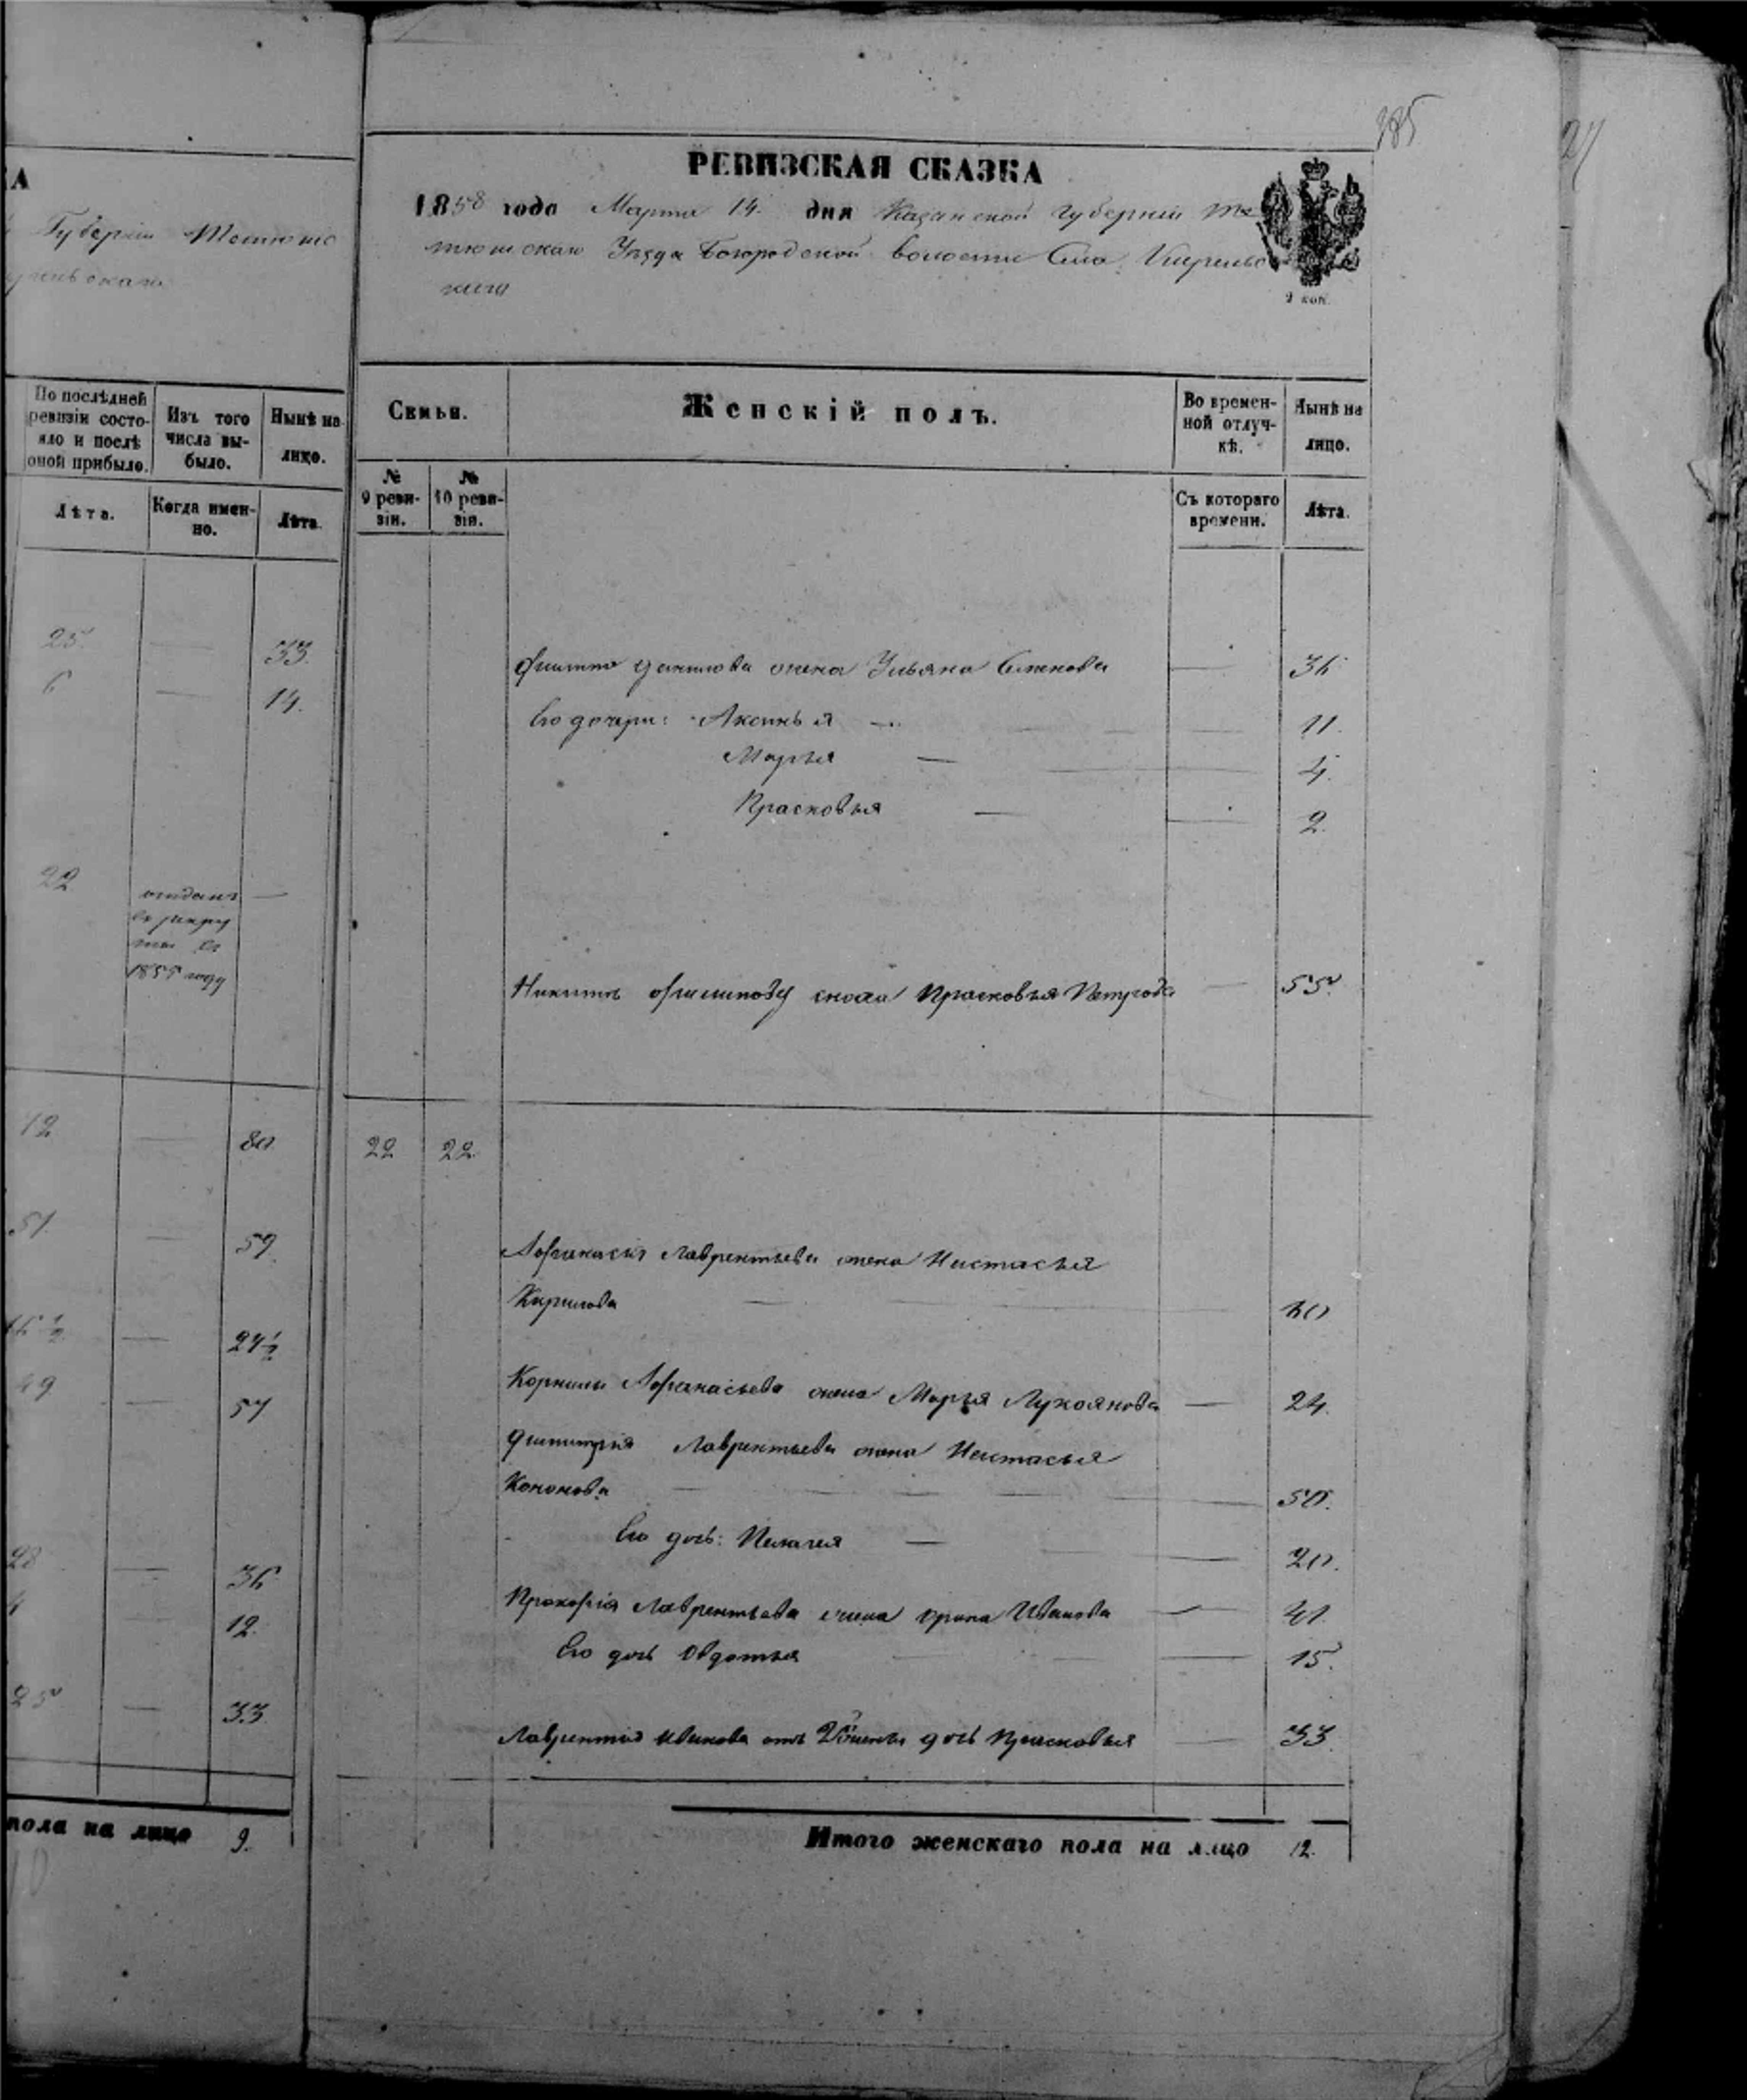 385
27
КА
Губерніи Тетюшс
РЕВИЗСКАЯ СКАЗКА
1858 года Марта 14. дня Казанской губерніи Те
тюшскаго Уѣзда Богородской волости Села
каго
2 коп.
По послѣдней ревизіи состояло и послѣ оной прибыло. Изъ того числа выбыло. Нынѣ на лицо.
Лѣта. Когда именно. Лѣта.
Семьи. Женскій полъ. Во временной отлучкѣ. Нынѣ на лицо.
№ 9 ревизіи. № 10 ревизіи. Съ котораго времени. Лѣта.
25. — 33.
6 — 14.
22 отданъ —
въ рекру
ты въ
1855 году
72 — 80
51. — 59.
16 1/2 — 24 1/2
49 — 57
28 — 36
4 — 12.
25 — 33.
пола на лицо 9.
10
Филипа Данилова жена Ульяна Семенова — 36
Его дочери: Аксинья — 11.
Марья — 4.
Прасковья — 2.
Никиты Филипову сноха Прасковья Петрова — 55.
22 22.
Афанасія Лаврентьева жена Настасья
Кирилова — 60
Корнилы Афанасьева жена Марья Лукоянова — 24.
Димитрія Лаврентьева жена Настасья
Кононова — 50.
Его дочь: Пелагея — 20.
Прокофія Лаврентьева жена Ирина Иванова — 41.
Его дочь Овдотья — 15.
Лаврентія Иванова отъ 2й жены дочь Прасковья — 33.
Итого женскаго пола на лицо 12.